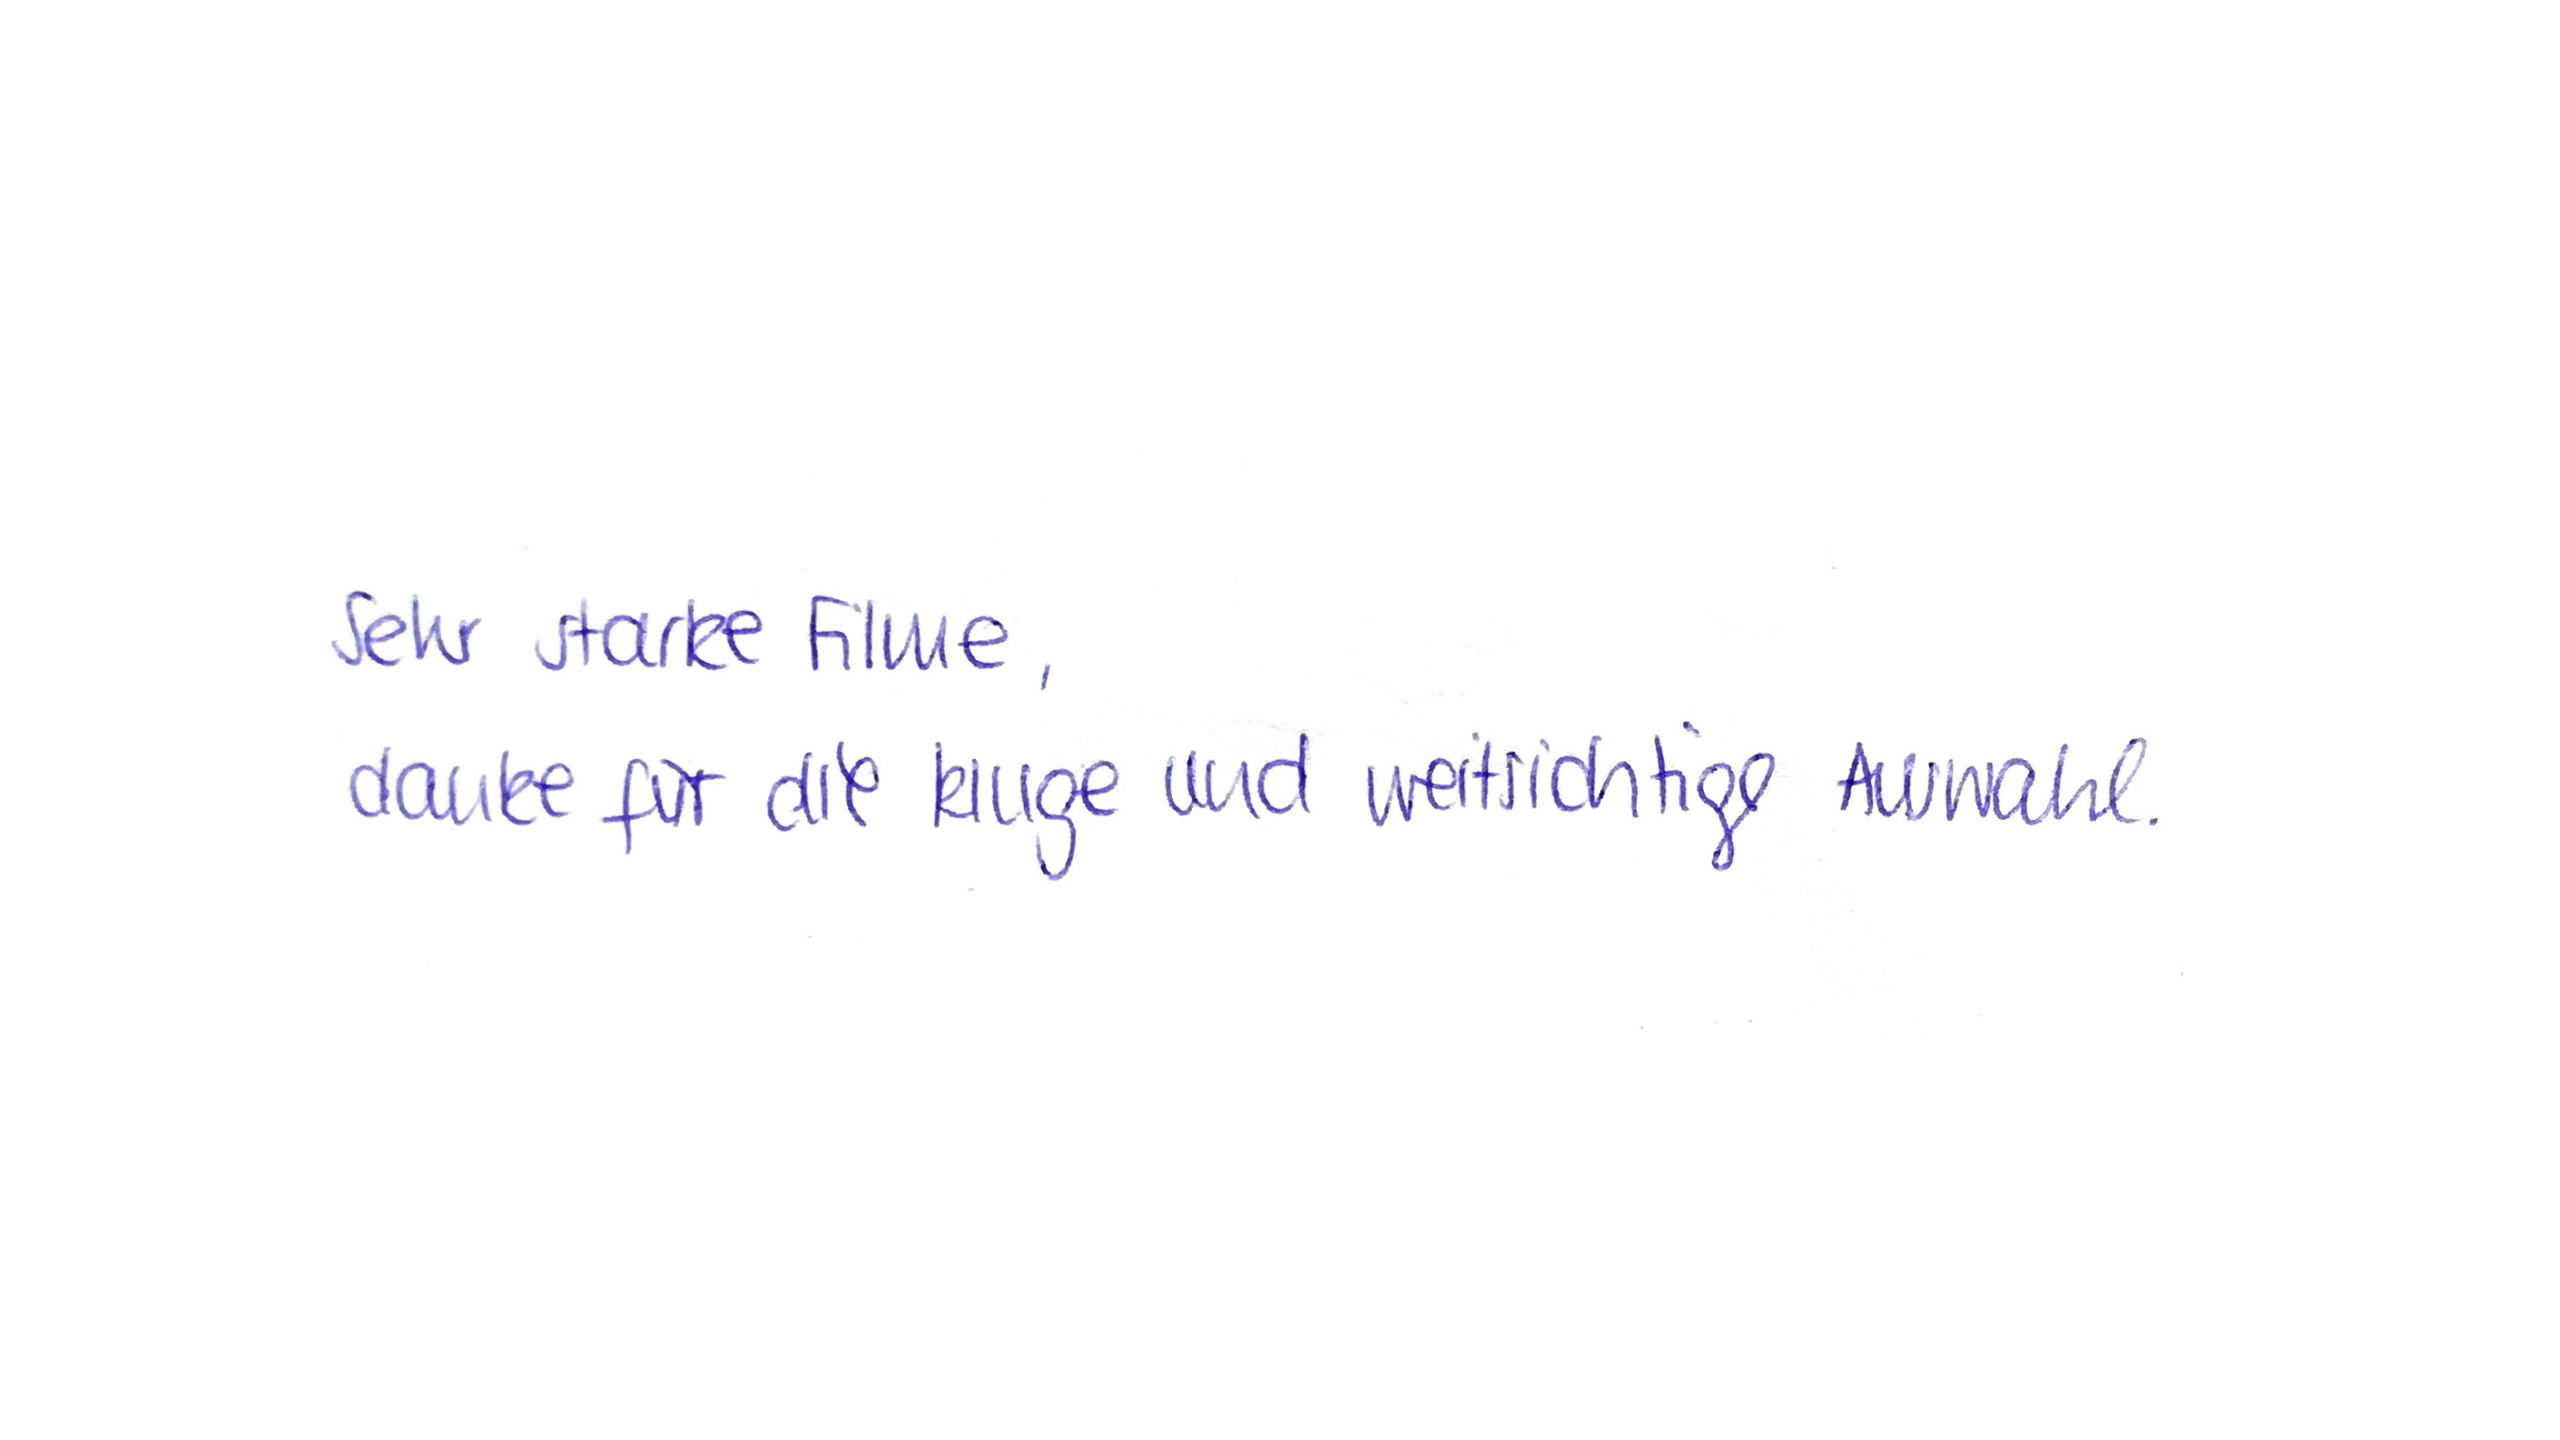 Sehr starke Filme,
danke für die kluge und weitsichtige Auswahl.